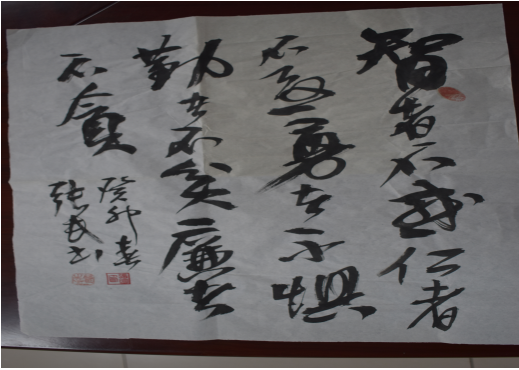 智者不惑仁者
不憂勇者不惧
勤者不贫廉者
不貪
癸卯春
张武书